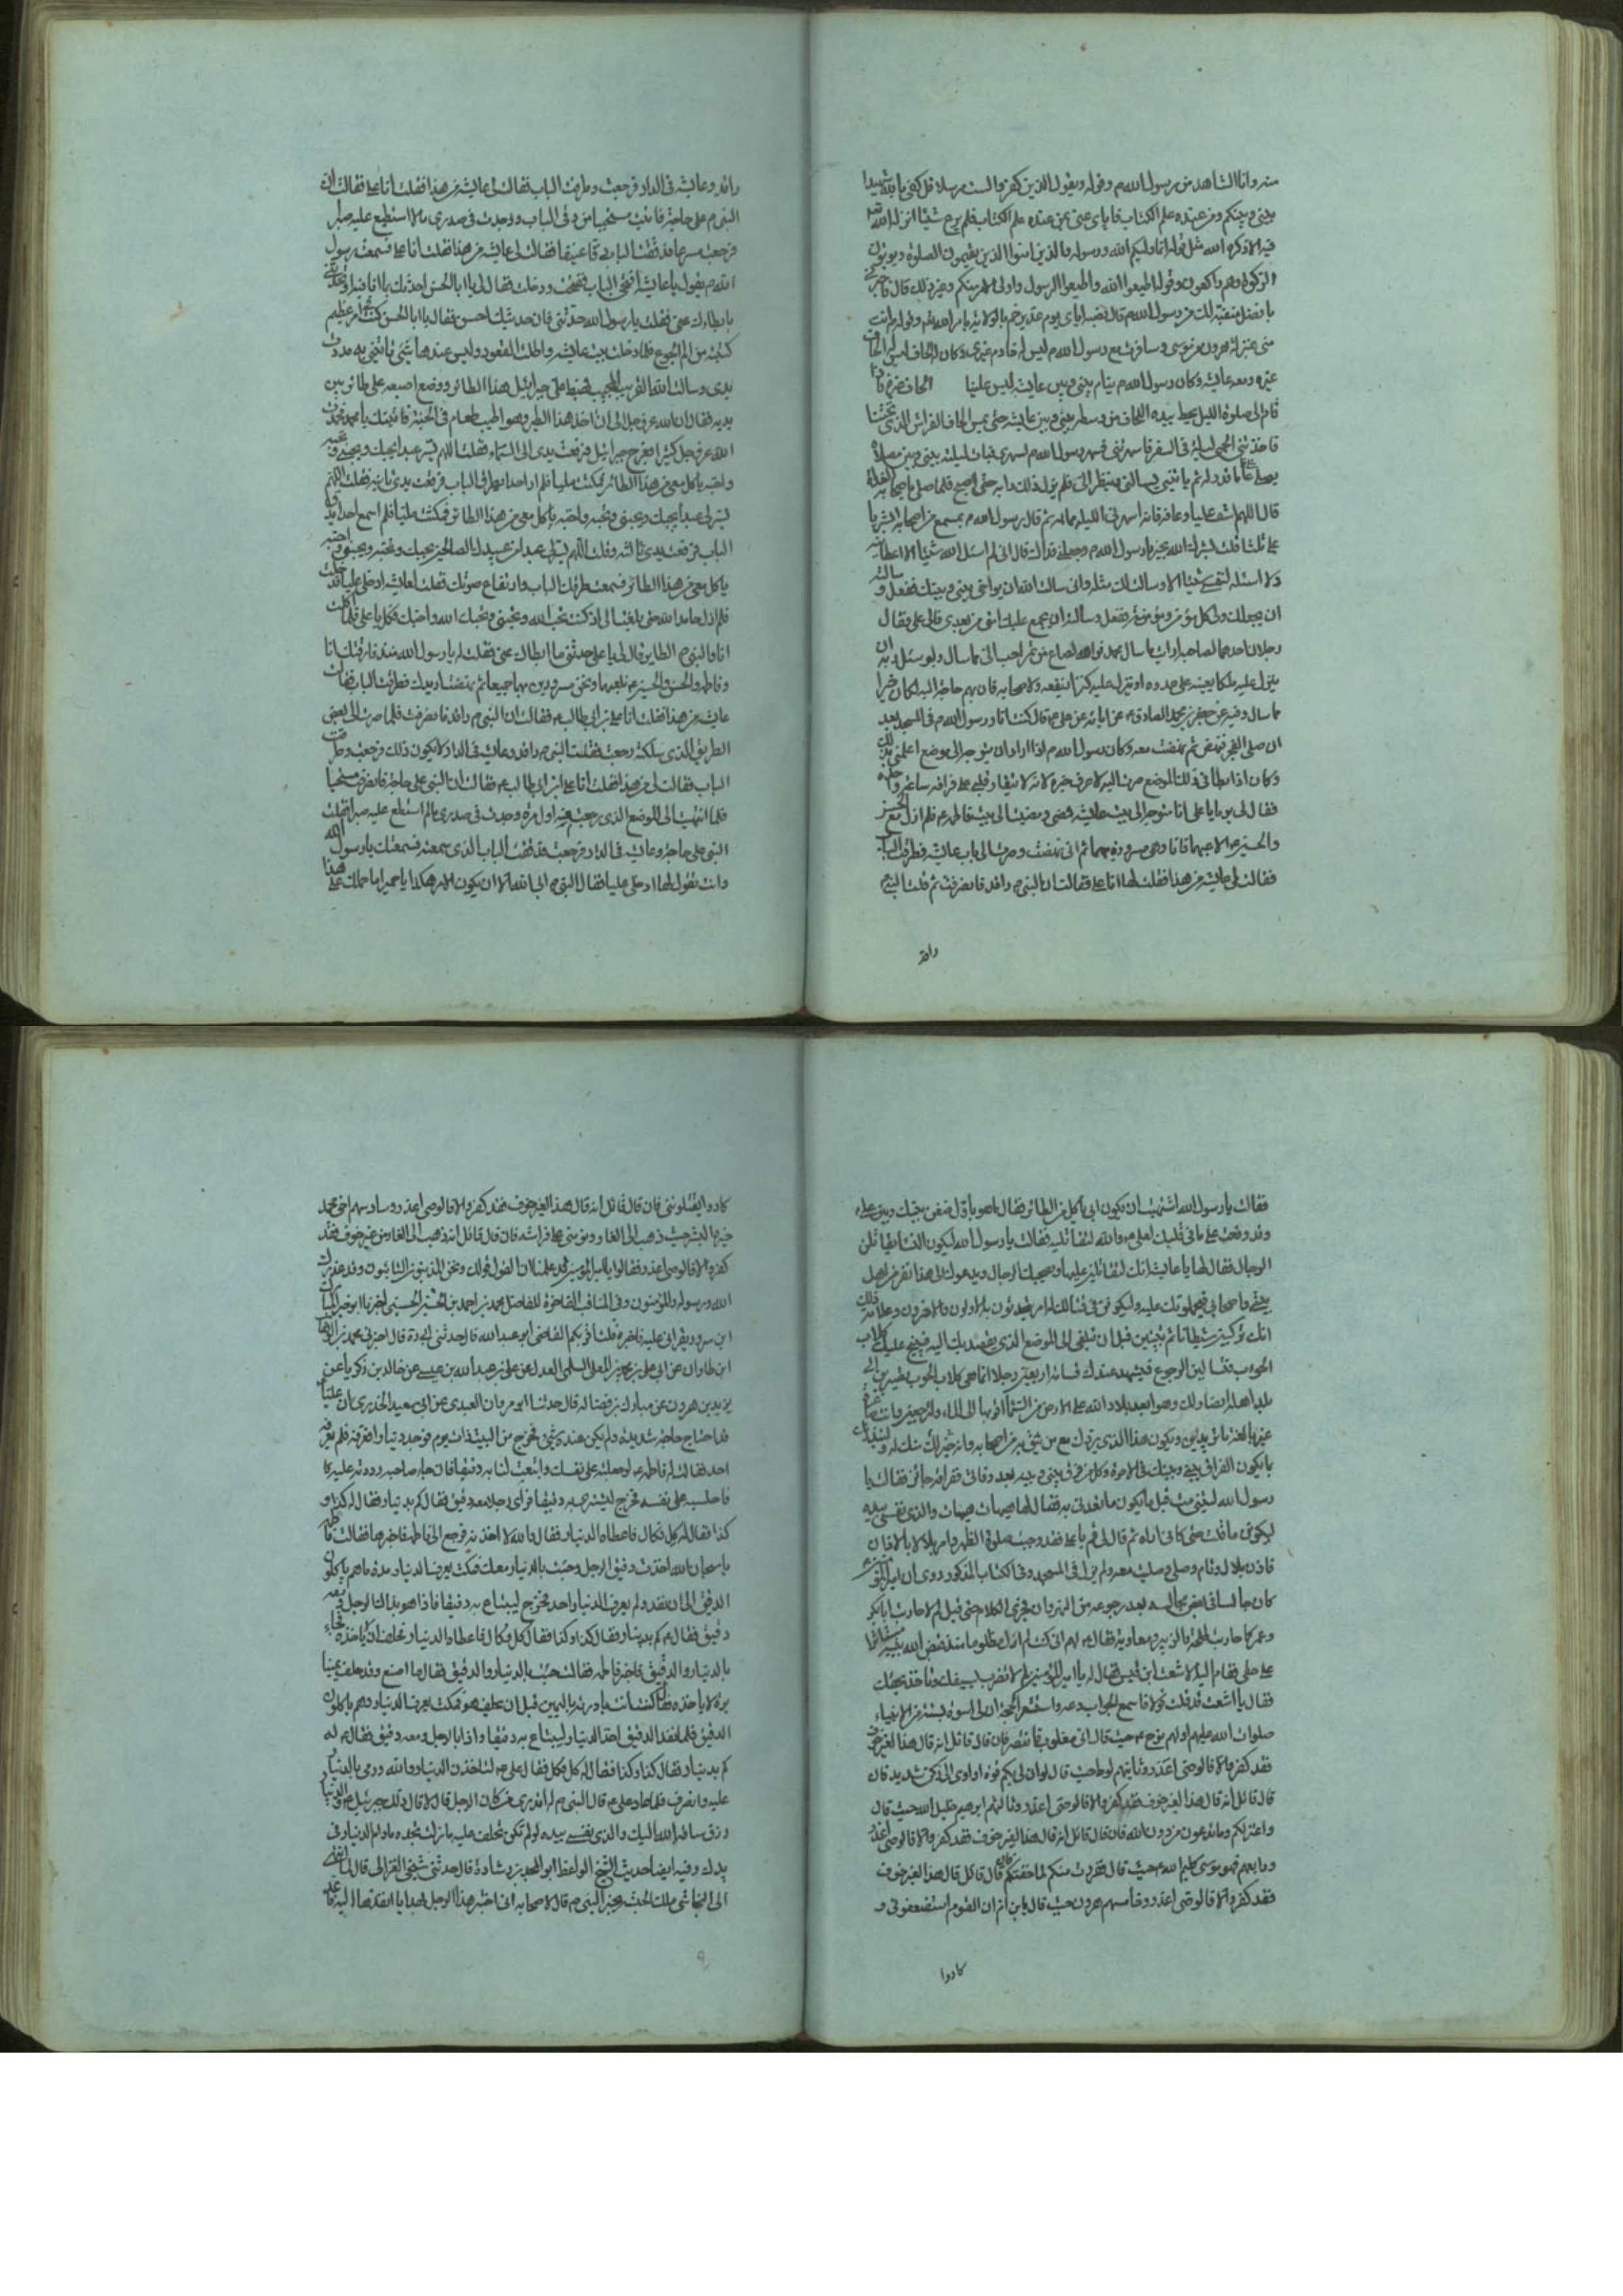 منه وانا الشاهد من رسول الله م وقوله ويقول الذين كفروا لست مرسلا قل كفى بالله شهيدا
بيني وبينكم ومن عنده علم الكتاب فاياى عنى بمن عنده علم الكتاب فلم يدع شيئا انزله الله
فيه الا ذكره الله مثل قوله انما وليكم الله ورسوله والذين امنوا الذين يقيمون الصلوة ويؤتون
الزكوة وهم راكعون وقوله اطيعوا الله واطيعوا الرسول واولى الامر منكم وغير ذلك قال فاخبرني
بافضل منقبة لك من رسول الله م قال نصبه اياى يوم غدير خم بالولاية بامر الله ثم وقوله م انت
منى بمنزلة هرون من موسى وسافرت مع رسول الله م ليس له خادم غيرى وكان له لحاف ليس له لحاف
غيره ومعه عايشه وكان رسول الله م ينام بيني وبين عايشه ليس علينا لحاف غيره فاذا
قام الى صلوة الليل يحط بيده اللحاف من وسطه بيني وبين عايشه حتى يمس اللحاف الفراش الذى تحتنا
فاخذتني الحمى ليلة فى السفر فاسهرتني فسهر رسول الله م لسهرى فبات ليلته بيني وبين مصلاه
يصلى ما قدر له ثم ياتيني يسالني وينظر الى فلم يزل ذلك دابه حتى اصبح فلما صلى باصحابه الغداة
قال اللهم اشف عليا وعافه فانه اسهرنى الليلة مما به ثم قال رسول الله م بمسمع من اصحابه ابشر يا
على قلت بشرك الله بخير يا رسول الله م وجعلني فداك قال انى لم اسئل الله شيئا الا اعطانيه
ولا اسئله لنفسى شيئا الا وسالت لك مثله وانى سالت الله ان يواخى بيني وبينك ففعل وسالته
ان يجعلك ولى كل مؤمن ومؤمنة ففعل وسالته ان يجمع عليك امتى من بعدى فابى على فقال
رجلان احدهما لصاحبه ارايت ما سال محمد فوالله لصاع من تمر احب الى مما سال ولو سئل ربه ان
ينزل عليه ملكا يعينه على عدوه او ينزل عليه كنزا ينفعه واصحابه فان بهم حاجة اليه لكان خيرا
مما سال وفيه عن جعفر بن محمد الصادق ع عن ابائه عن على ع قال كنت انا ورسول الله م فى المسجد بعد
ان صلى الفجر فنهض ثم نهضت معه وكان رسول الله م اذا اراد ان يتوجه الى موضع اعلمنى بذلك
وكان اذا ابطا فى ذلك الموضع صرت اليه لاعرف خبره لانه لا يتقار قلبى على فراقه ساعة واحدة
فقال لى يوما يا على انا متوجه الى بيت عايشه فمضى ومضيت الى بيت فاطمه ع فلم ازل مع الحسن
والحسين ع الاعبهما فانا وهى مسرورة بهما ثم انى نهضت وصرت الى باب عايشه فطرقت الباب
فقالت لى عايشه من هذا فقلت لها انا على فقالت ان النبى م راقد فانصرفت ثم قلت النبى م
راقد
راقد وعايشه فى الدار فرجعت وطرقت الباب فقالت لى عايشه من هذا فقلت انا على فقالت ان
النبى م على حاجة فانثنيت مستحييا من دقى الباب ووجدت فى صدرى ما لا استطيع عليه صبرا
فرجعت مسرعا فدققت الباب دقا عنيفا فقالت لى عايشه من هذا فقلت انا على فسمعت رسول
الله م يقول يا عايشه افتحى الباب ففتحت ودخلت فقال لى يا ابا الحسن احدثك بما انا فيه او تحدثني
بابطائك عنى فقلت يا رسول الله حدثنى فان حديثك احسن فقال يا ابا الحسن كنت فى امر عظيم
كتمته من الم الجوع فلما دخلت بيت عايشه واطلت القعود وليس عندها شئ تاتيني به مددت
يدى وسالت الله القريب المجيب فهبط على جبرائيل هذا الطائر ووضع اصبعه على طائر بين
يديه فقال ان الله عز وجل الى ان اخذ هذا الطير وهو اطيب طعام فى الجنة فاتيتك يا محمد فحمدت
الله عز وجل كثيرا وعرج جبرائيل فرفعت يدى الى السماء فقلت اللهم يسر عبدا يحبك ويحبني وتحبه
واحبه ياكل معى من هذا الطائر فمكثت مليا فلم ار احدا يطرق الباب فرفعت يدى ثانية فقلت اللهم
يسر لى عبدا يحبك ويحبني وتحبه واحبه ياكل معى من هذا الطائر فمكثت مليا فلم اسمع احدا يدق
الباب فرفعت يدى ثالثه وقلت اللهم يسر لى عبدا من عبيدك الصالحين يحبك وتحبه ويحبني واحبه
ياكل معى من هذا الطائر فسمعت طرقك الباب وارتفاع صوتك فقلت لعايشه ادخلى عليا فدخلت
فلم ازل حامدا لله حتى بلغت الى اذ كنت تحب الله وتحبنى ويحبك الله واحبك فكل يا على فلما اكلت
انا والنبى م الطاير قال لى يا على حدثنى ما ابطاك عنى فقلت له يا رسول الله منذ فارقتك انا
وفاطمه والحسن والحسين ع نلعبهما ونحن مسرورين بهما جميعا ثم نهضت اريدك فطرقت الباب فقالت
عايشه من هذا فقلت انا على بن ابى طالب ع فقالت ان النبى م راقد فانصرفت فلما صرت الى بعض
الطريق الذى سلكته رجعت فقلت النبى م راقد وعايشه فى الدار لا يكون ذلك فرجعت وطرقت
الباب فقالت لى من هذا فقلت انا على ابن ابى طالب ع فقالت ان النبى على حاجة فانصرفت مستحيا
فلما انتهيت الى الموضع الذى رجعت فيه اول مرة وجدت فى صدرى ما لم استطع عليه صبرا فقلت
النبى على حاجة وعايشه فى الدار فرجعت فدققت الباب الذى سمعته فسمعتك يا رسول الله
وانت تقول لها ادخلى عليا فقال النبى م ابى الله الا ان يكون الامر هكذا يا حميرا ما حملك على هذا
فقالت يا رسول الله اشتهيت ان يكون ابى ياكل من الطائر فقال ما هو باول ضغن بينك وبين على
وقد وقعت على ما فى قلبك لعلى ع والله لتقاتليه فقالت يا رسول الله ايكون النساء يقاتلن
الرجال فقال لها يا عايشه انك لتقاتلين عليا ويصحبك الرجال ويدعوك الى هذا نفر من اهل
بيتى واصحابى فيحملونك عليه وليكونن فى قتالك له امر يتحدثون به الاولون والاخرون وعلامة ذلك
انك تركبين شيطانا ثم تبتلين قبل ان تبلغى الى الموضع الذى يقصد بك اليه فينبح عليك كلاب
الحوءب فتسالين الرجوع فيشهد عندك قسامة اربعين رجلا انما هى كلاب الحوءب فتصيرين الى
بلد اهله انصارك وهو ابعد بلاد الله على الارض من السماء واقربها الى الماء ولترجعين وانت صاغره
غير بالغة ما تريدين ويكون هذا الذى يردك مع من يثق به من اصحابه وانه خير لك منك له ولينذرنك
بما يكون الفراق بيني وبينك فى الاخرة وكل من فرق بيني وبينه بعد وفاتى ففراقه جائز فقالت يا
رسول الله ليتنى مت قبل ما يكون ما تعدنى به فقال لها هيهات هيهات والذى نفسى بيده
ليكونن ما قلت حتى كانى اراه ثم قال لى قم يا على فقد وجبت صلوة الظهر وامر بلالا بالاذان
فاذن بلال وقام وصلى وصليت معه ولم يزل فى المسجد وفى الكتاب المذكور روى ان امير المؤمنين ع
كان جالسا فى بعض مجالسه بعد رجوعه من النهروان فجرى الكلام حتى قيل لم لا حاربت ابا بكر
وعمر كما حاربت طلحة والزبير ومعاويه فقال ع لهم انى كنت لم ازل مظلوما منذ قبض الله نبيه مستاثرا
على حقى فقام اليه الاشعث ابن قيس فقال له يا امير المؤمنين لم لا تضرب بسيفك وتاخذ بحقك
فقال يا اشعث قد قلت قولا فاسمع الجواب وعه واستشعر الحجة ان لى اسوة بستة من الانبياء
صلوات الله عليهم اولهم نوح ع حيث قال انى مغلوب فانتصر فان قال قائل انه قال هذا لغير خوف
فقد كفر والا فالوصى اعذر وثانيهم لوط حيث قال لو ان لى بكم قوة او اوى الى ركن شديد فان
قال قائل انه قال هذا لغير خوف فقد كفر والا فالوصى اعذر وثالثهم ابرهيم خليل الله حيث قال
واعتزلكم وما تدعون من دون الله فان قال قائل انه قال هذا لغير خوف فقد كفر والا فالوصى اعذر
ورابعهم فهو موسى كليم الله حيث قال ففررت منكم لما خفتكم فان قال قائل قال هذا لغير خوف
فقد كفر والا فالوصى اعذر وخامسهم هرون حيث قال يابن ام ان القوم استضعفونى و
كادوا
كادوا يقتلوننى فان قال قائل انه قال هذا لغير خوف فقد كفر والا فالوصى اعذر وسادسهم اخى محمد
خير البشر حيث ذهب الى الغار ونومنى على فراشه فان قال قائل انه ذهب الى الغار من غير خوف فقد
كفر والا فالوصى اعذر فقالوا يا امير المؤمنين قد علمنا ان القول قولك ونحن المذنبون التائبون وقد عذرك
الله ورسوله والمؤمنون وفى المناقب الفاخرة للفاضل محمد بن احمد بن الحسين الحسينى اخبرنا ابو الخير المبارك
ابن سرور بقراتى عليه فاخبره قلت اخبركم القاضى ابو عبد الله قال حدثنى ابى ره قال اخبرنى محمد بن
ابن طاوان عن ابى على بن محمد بن المعلى السلمى العدل عن على بن عبد الله بن عيسى عن خالد بن زكرياء عن
يزيد بن هرون عن مبارك بن فضاله قال حدثنا ابو هرون العبدى عن ابى سعيد الخدرى ان عليا ع
قد احتاج حاجة شديدة ولم يكن عنده شئ فخرج من البيت ذات يوم فوجد دينارا فعرفه فلم يعرفه
احد فقالت له فاطمه ع لو جعلته على نفسك وابتعت لنا به دقيقا فان جاء صاحبه رددته عليه
فاحتسبه على نفسه فخرج ليشترى به دقيقا فراى رجلا معه دقيق فقال كم بدينار فقال له كذا و
كذا فقال له كل فكال فاعطاه الدينار فقال والله لا اخذته فرجع الى فاطمه فاخبرها فقالت
يا سبحان الله اخذت دقيق الرجل وجئت بالدينار معك فمكث يعرف الدينار مدة ما هم ياكلون
الدقيق الى ان نفد ولم يعرف الدينار احد فخرج ليبتاع به دقيقا فاذا هو بذلك الرجل ومعه
دقيق فقال ع كم بدينار فقال كذا وكذا فقال كل فكال فاعطاه الدينار فحلف ان لا ياخذه فجاء
بالدينار والدقيق فاخبر فاطمه فقالت جئت بالدينار والدقيق فقال ما اصنع وقد حلف يمينا
برة لا ياخذه فقالت كنت انت بادرته باليمين قبل ان يحلف هو فمكث يعرف الدينار وهم ياكلون
الدقيق فلما نفد الدقيق اخذ الدينار ليبتاع به دقيقا واذا بالرجل ومعه دقيق فقال ع له
كم بدينار فقال كذا وكذا فقال له كل فكل فقال على ع لتاخذن الدينار والله ورمى بالدينار
عليه وانصرف فلما عاد على ع قال النبى م له اتدرى من كان الرجل قال لا قال ذلك جبرئيل ع والدينار
رزق ساقه الله اليك والذى نفسى بيده لو لم تكن تحلف عليه ما زلت تجده ما دام الدينار فى
يدك وفيه ايضا حديث الشيخ الواعظ ابو المجد بن رشادة قال حدثنى شيخى الغزالى قال لما
الى النجاشى ملك الحبشه بخبر النبى م قال لاصحابه انى اختبر هذا الرجل بهدايا انفذتها اليه